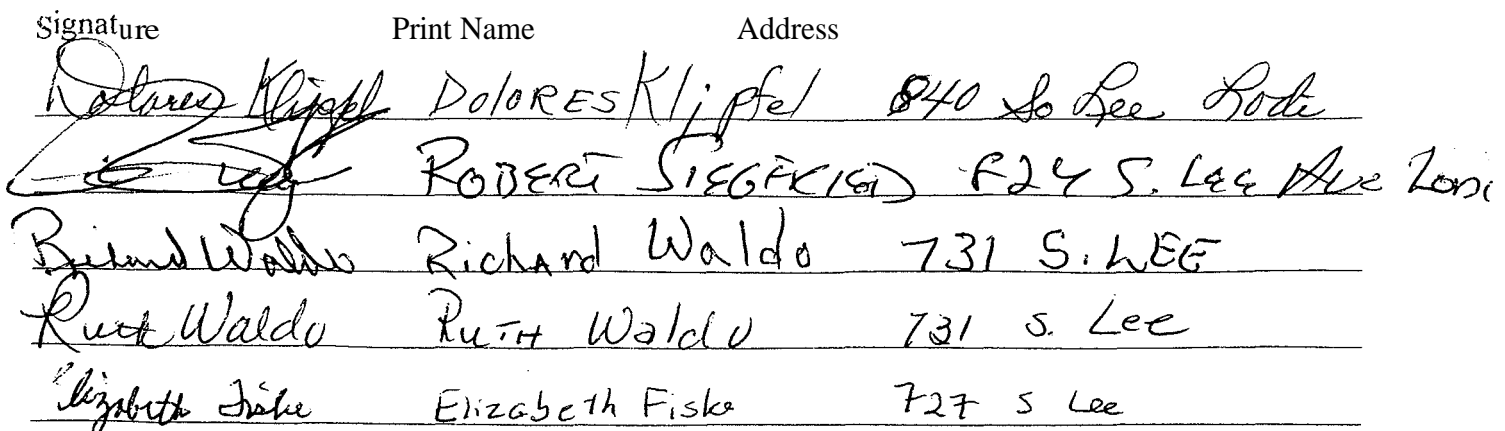 Signature Print Name Address
Dolores Klipfel DoloRES Klipfel 840 So Lee Lodi
ROBERT SIEGFRIED 824 S. Lee Ave Lodi
Richard Waldo Richard Waldo 731 S. LEE
Ruth Waldo RuTH Waldo 731 S. Lee
Elizabeth Fiske Elizabeth Fiske 727 S Lee